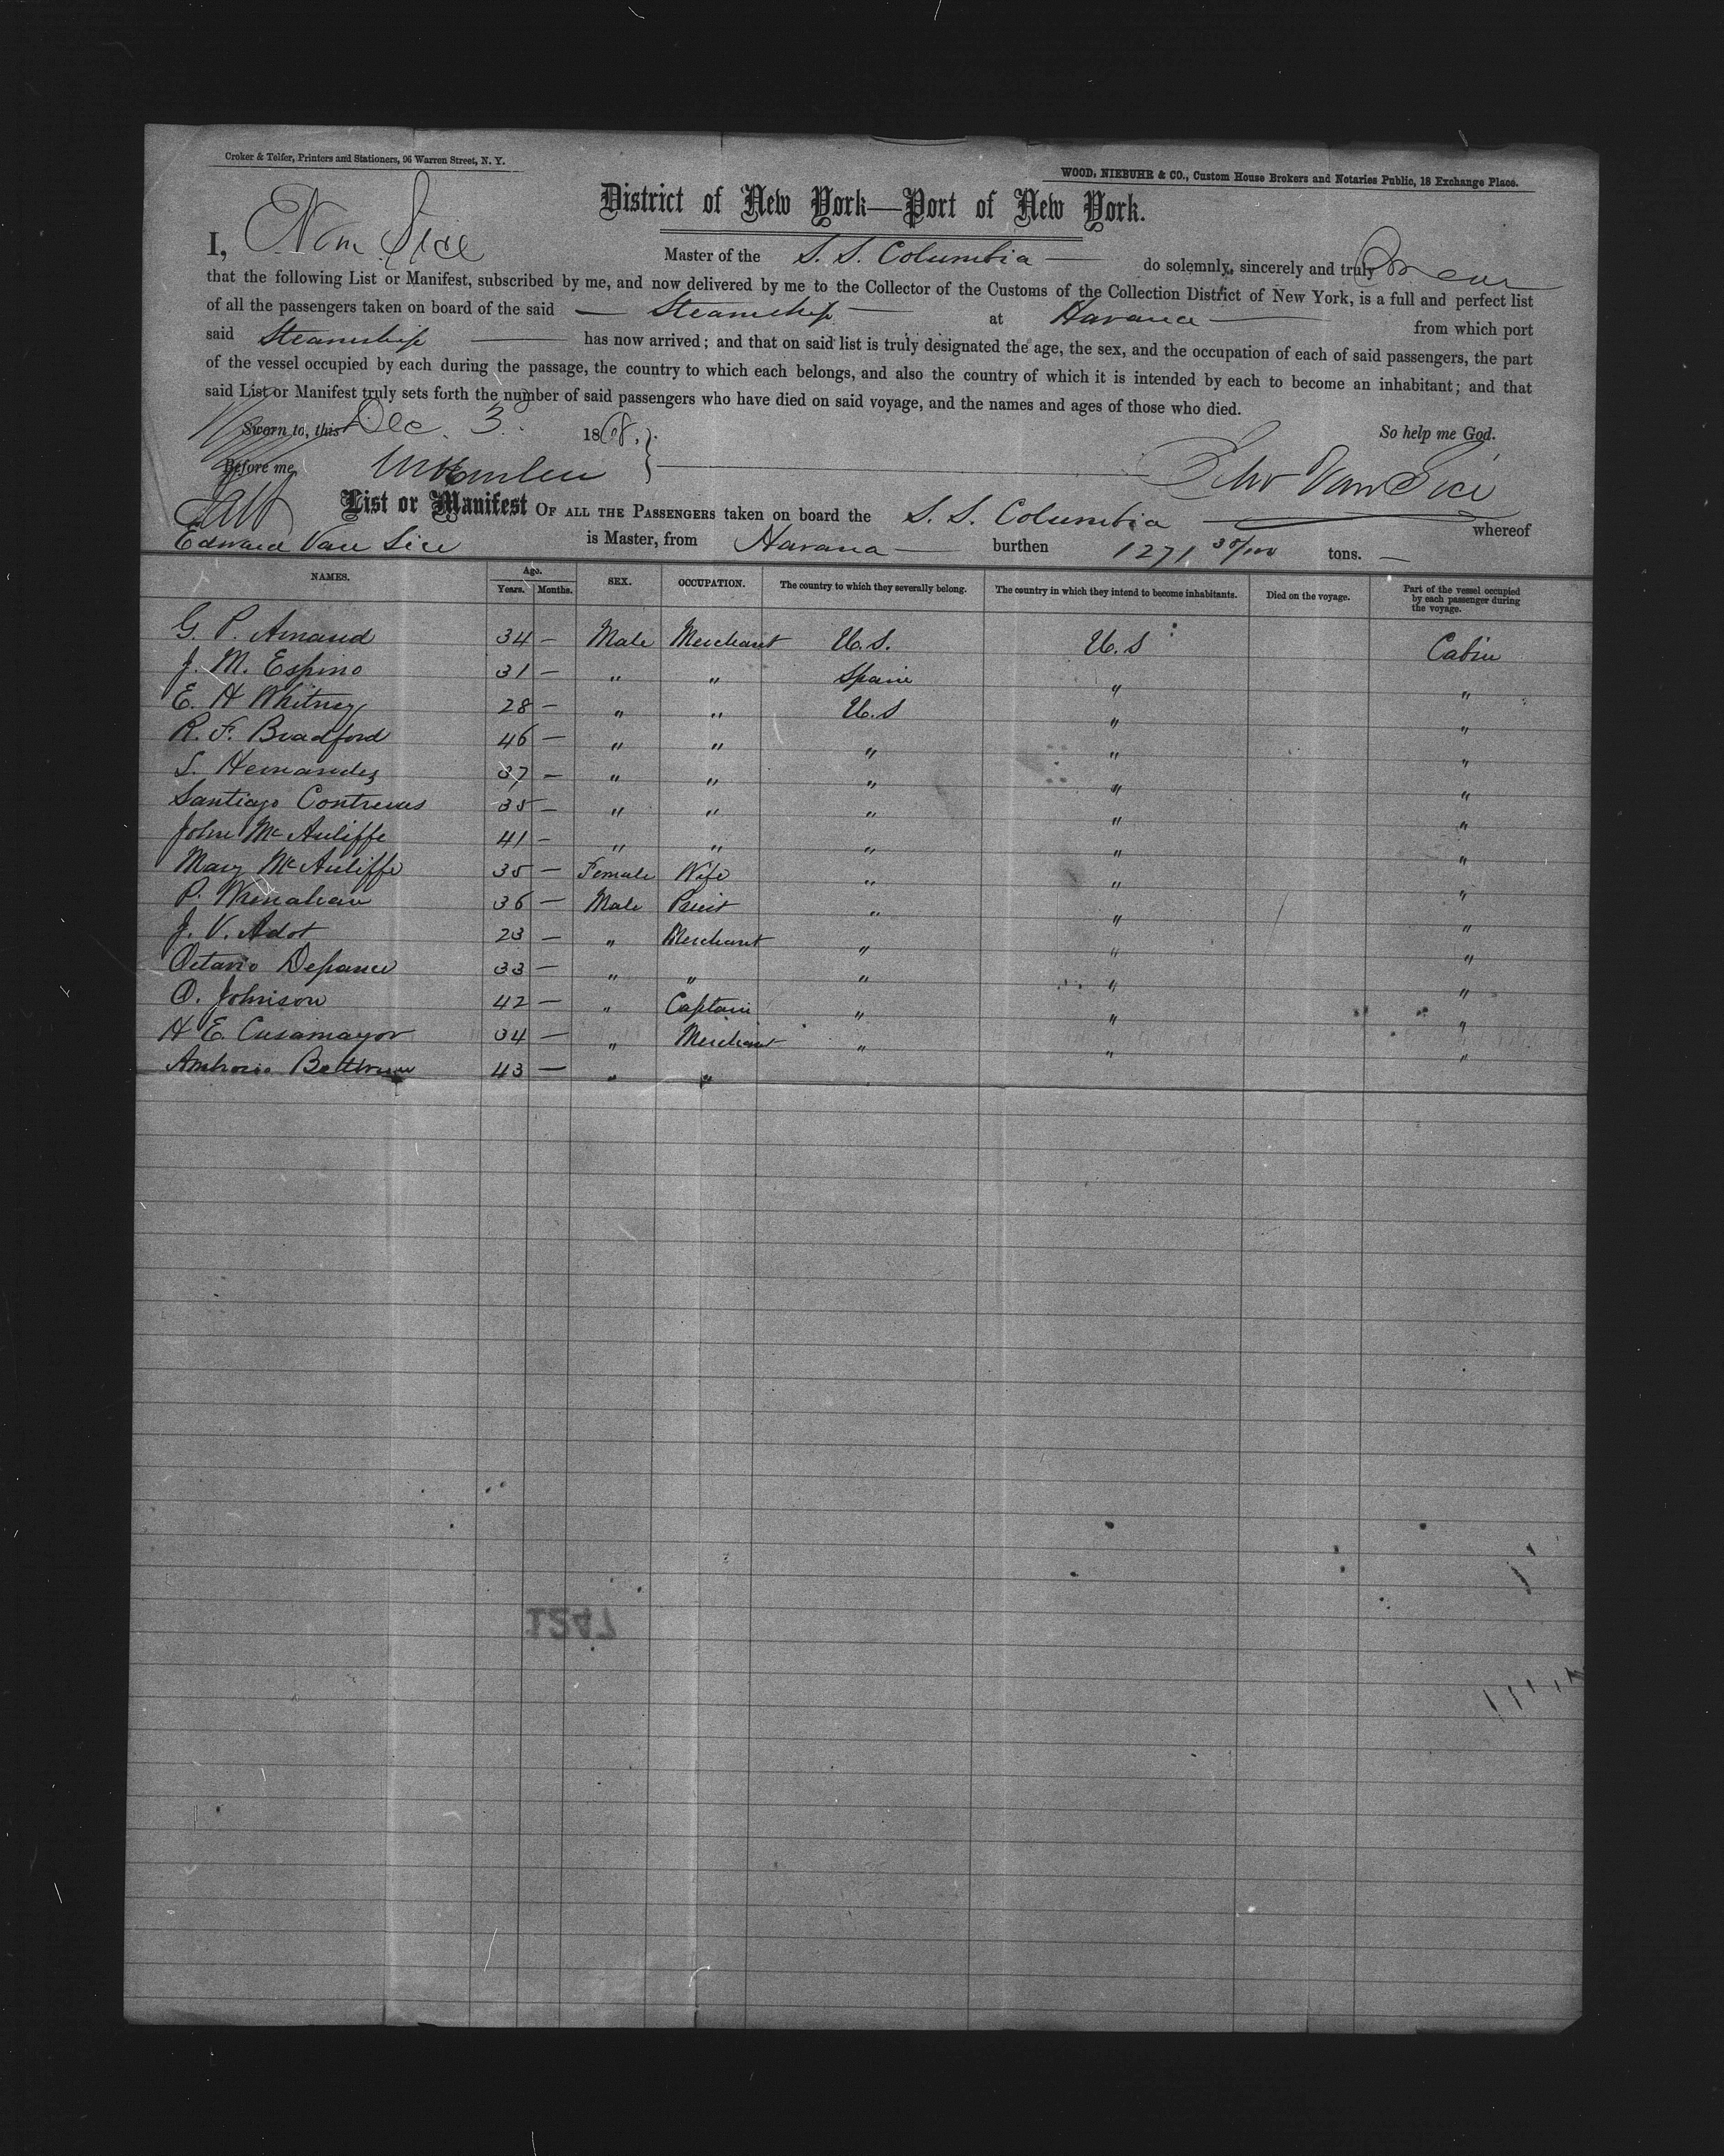 Croker & Telfer, Printers and Stationers, 96 Warren Street, N. Y.
WOOD, NIEBUHR & CO., Custom House Brokers and Notaries Public, 18 Exchange Place.
District of New York—Port of New York.
I, E Van Sice Master of the S. S. Columbia do solemnly, sincerely and truly Swear
that the following List or Manifest, subscribed by me, and now delivered by me to the Collector of the Customs of the Collection District of New York, is a full and perfect list
of all the passengers taken on board of the said Steamship at Havana from which port
said Steamship has now arrived; and that on said list is truly designated the age, the sex, and the occupation of each of said passengers, the part
of the vessel occupied by each during the passage, the country to which each belongs, and also the country of which it is intended by each to become an inhabitant; and that
said List or Manifest truly sets forth the number of said passengers who have died on said voyage, and the names and ages of those who died.
Sworn to, this Dec. 3 1868. So help me God.
Before me, Edw Van Sice
List or Manifest OF ALL THE PASSENGERS taken on board the S. S. Columbia whereof
Edward Van Sice is Master, from Havana burthen 1271 38/100 tons.
NAMES. Age. Years. Months. SEX. OCCUPATION. The country to which they severally belong. The country in which they intend to become inhabitants. Died on the voyage. Part of the vessel occupied by each passenger during the voyage.
G. P. Arnaud 34 — Male Merchant U.S. U.S Cabin
J. M. Espino 31 — " " Spain " "
E. H Whitney 28 — " " U.S " "
R. F. Bradford 46 — " " " " "
S. Hernandez 37 — " " " " "
Santiago Contreras 35 — " " " " "
John McAuliffe 41 — " " " " "
Mary McAuliffe 35 — Female Wife " " "
P. 36 — Male Priest " " "
J. V. Adot 23 — " Merchant " " "
Octavio Defrance 33 — " " " " "
O. Johnison 42 — " Captain " " "
H E. Cusamayor 34 — " Merchant " " "
Ambrosio 43 — " "
1247